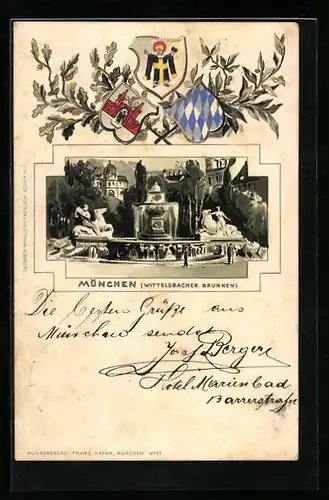 MÜNCHEN (WITTELSBACHER BRUNNEN)
Die besten Grüße aus
München sendet
Josef Berger
Hotel Marienbad
Barrerstraße
KUNSTVERLAG FRANZ MAYER, MÜNCHEN